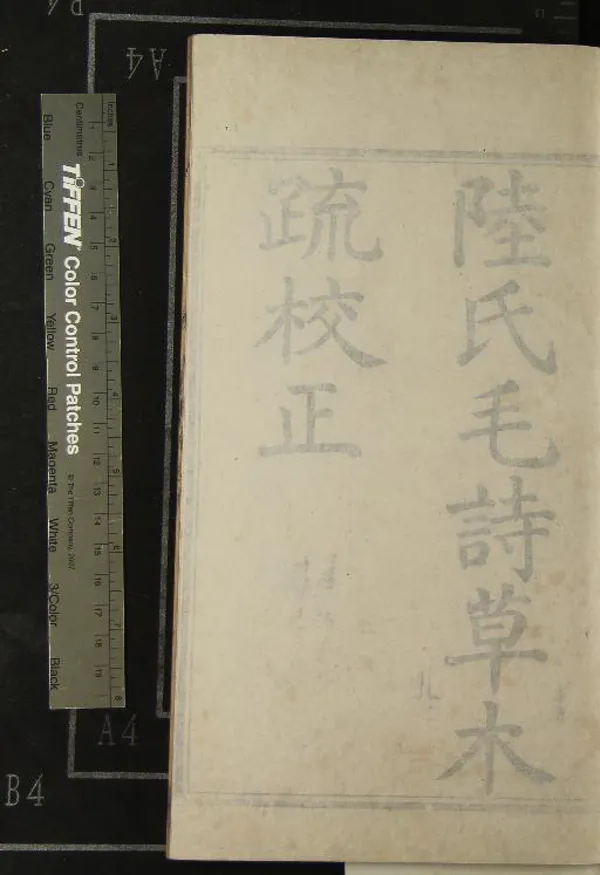 陸氏毛詩草木
疏校正
A4
B4
A4
B4
Inches
1 2 3 4 5 6 7 8
Centimetres
1 2 3 4 5 6 7 8 9 10 11 12 13 14 15 16 17 18 19
TIFFEN® Color Control Patches
© The Tiffen Company, 2007
Blue Cyan Green Yellow Red Magenta White 3/Color Black